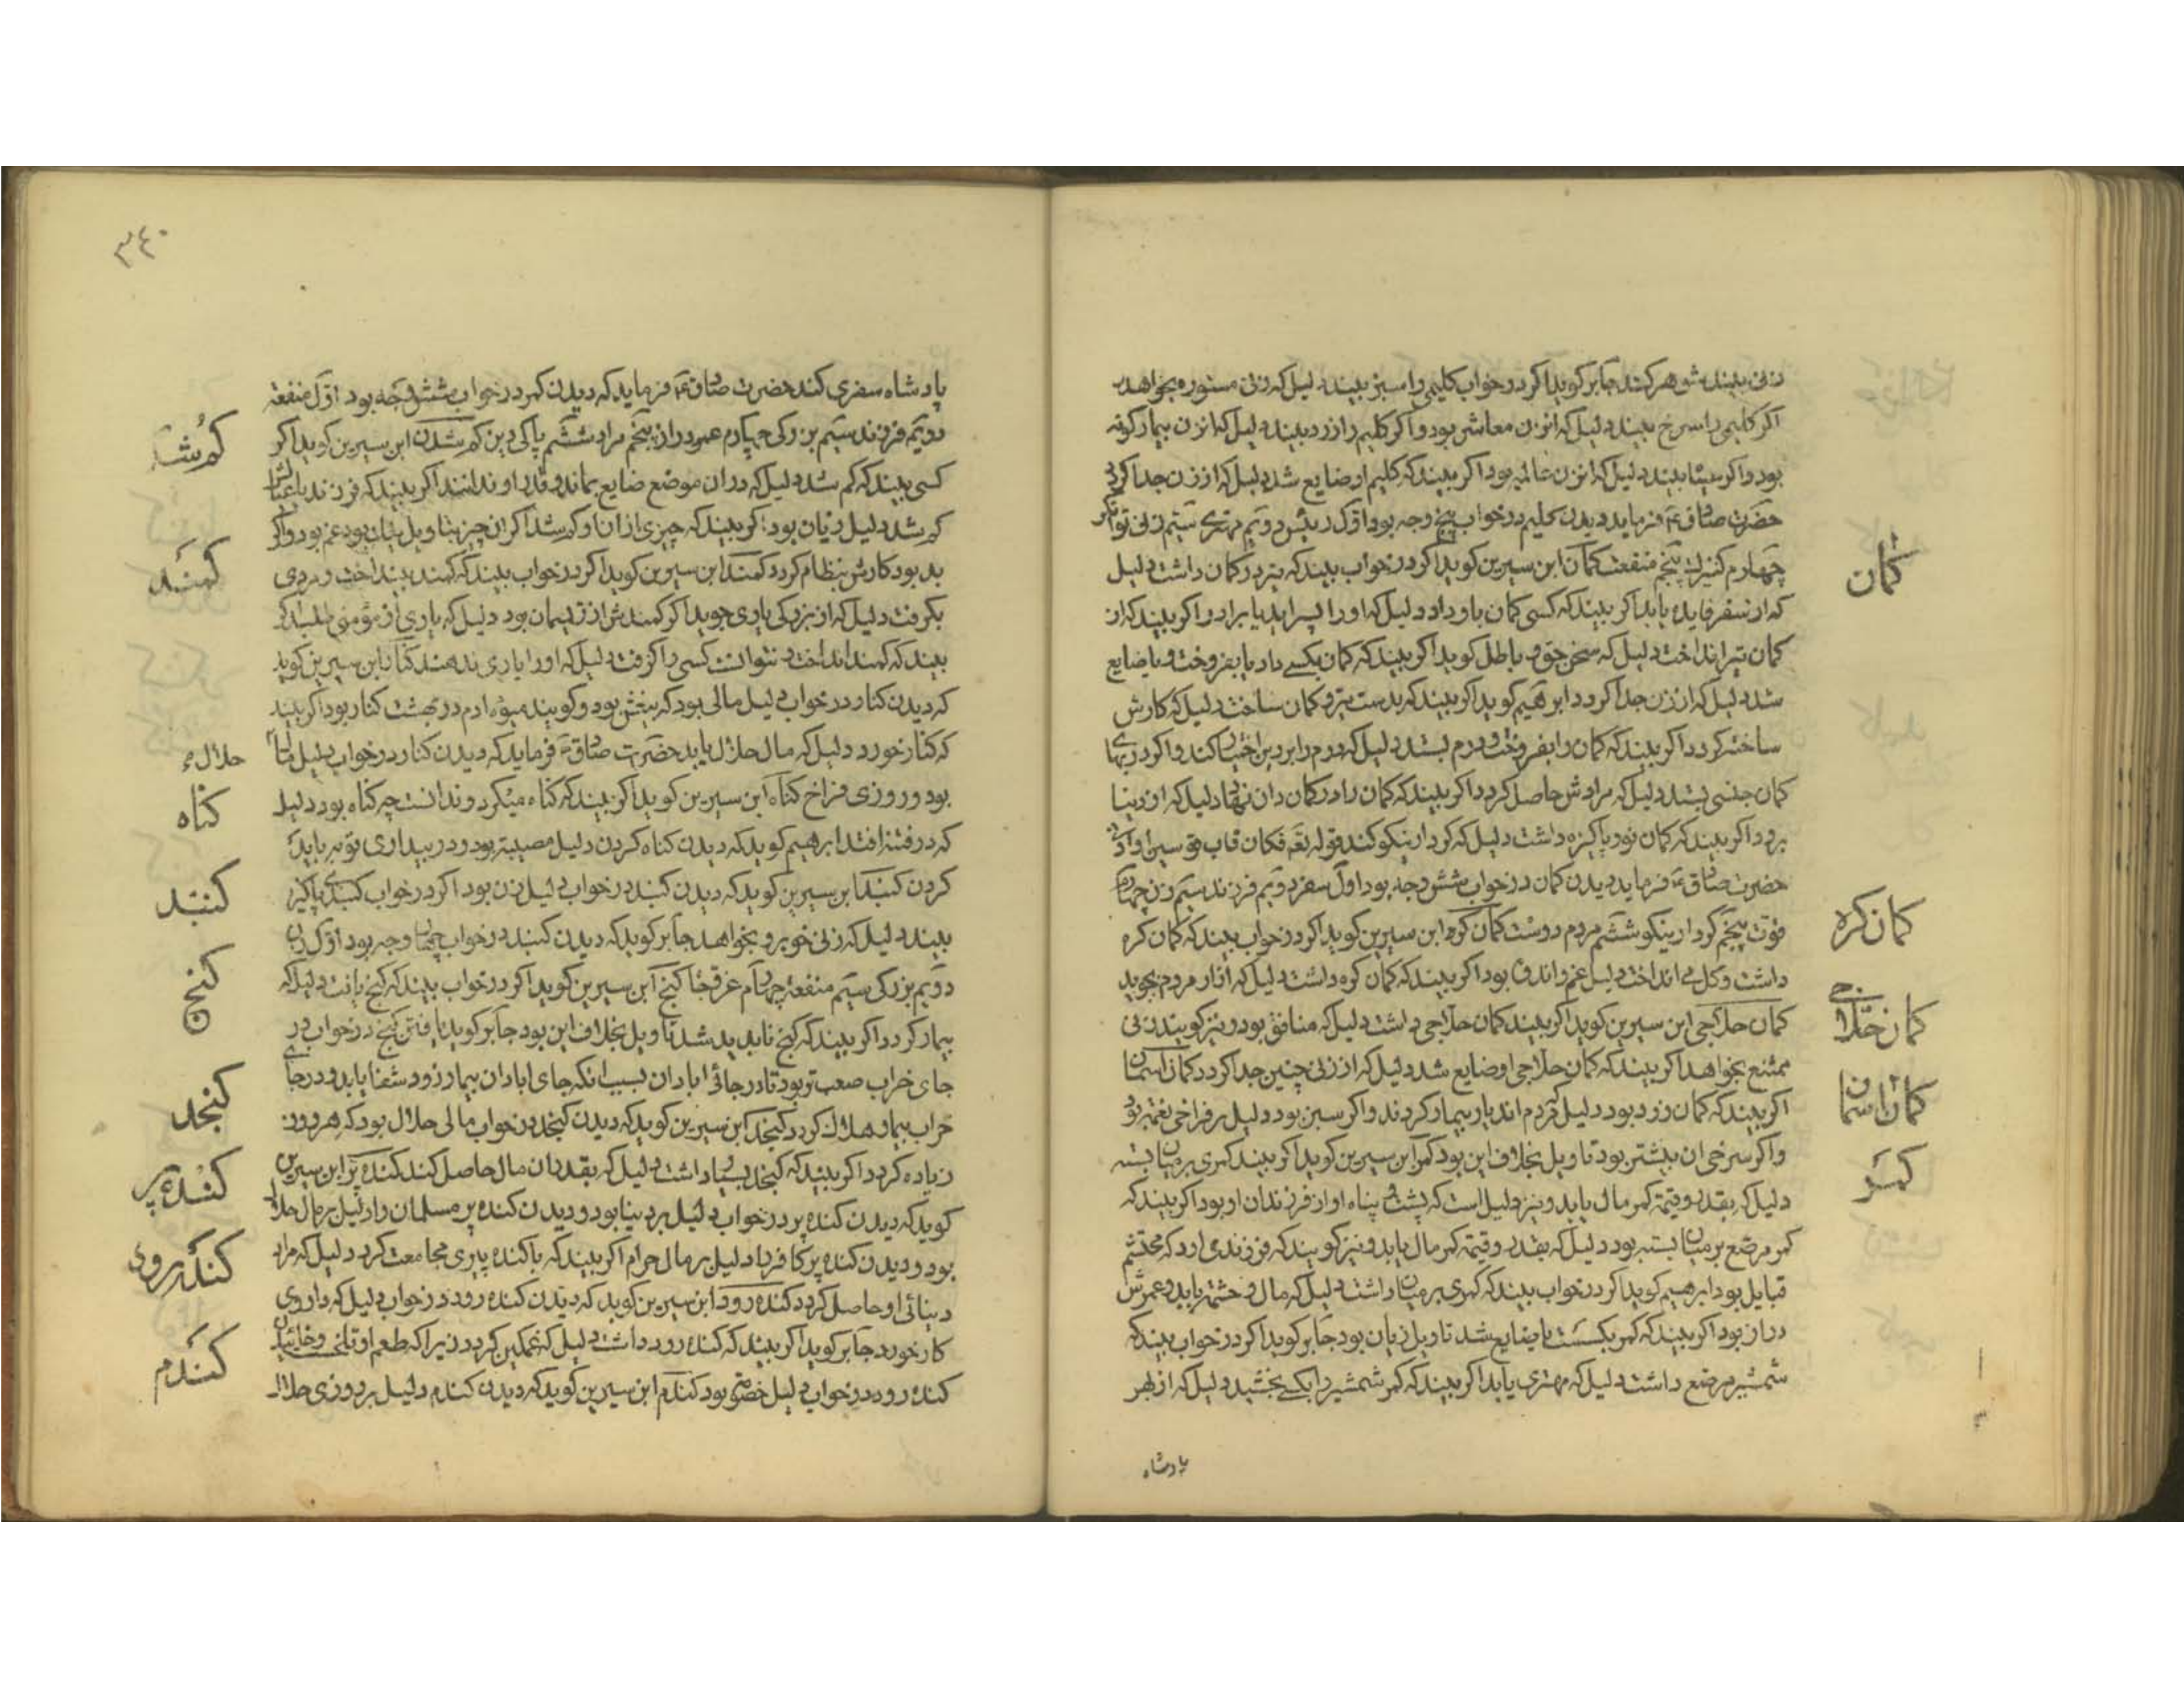 زنی بیند بشوهر کند جابر کوید اکر در خواب کلیمی را سبز بیند دلیل که زنی مستوره بخواهد
اکر کلیمی را سرخ بیند دلیل که انزن معاشر بود و اکر کلیم را زرد بیند دلیل که انزن بیمار کونه
بود و اکر سیاه بیند دلیل که انزن عالمه بود اکر بیند که کلیم او ضایع شد دلیل که از زن جدا کردد
حضرت صادق ع فرماید دیدن کلیم در خواب پنج وجه بود اول رئیس دویم مهتری سیم زنی توانکر
کمان
چهارم کنیزک پنجم منفعت کمان ابن سیرین کوید اکر در خواب بیند که تیر در کمان داشت دلیل
که از سفر فایده یابد اکر بیند که کسی کمان باو داد دلیل که او را پسر اید یا برادر و اکر بیند که از
کمان تیر انداخت دلیل که سخن حق و باطل کوید اکر بیند که کمان بکسی داد یا بفروخت و یا ضایع
شد دلیل که از زن جدا کردد ابرهیم کوید اکر بیند که بدست تیر و کمان ساخت دلیل که کارش
ساخته کردد اکر بیند که کمان را بفروخت و درم بستد دلیل که درم را بر دین اختیار کند و اکر در بهای
کمان جنسی بستد دلیل که مرادش حاصل کردد اکر بیند که کمان را در کمان دان نهاد دلیل که از دنیا
برود اکر بیند که کمان نو و پاکیزه داشت دلیل که کردار نیکو کند قوله تعه فکان قاب قوسین او ادنی
حضرت صادق ع فرماید دیدن کمان در خواب شش وجه بود اول سفر دویم فرزند سیم زن چهارم
کمان کره
قوت پنجم کردار نیکو ششم مردم دوست کمان کره ابن سیرین کوید اکر در خواب بیند که کمان کره
داشت و کل می انداخت دلیل غم و اندوه بود اکر بیند که کمان کره داشت دلیل که اثار مردم بجوید
کمان حلاجی
کمان حلاجی ابن سیرین کوید اکر بیند کمان حلاجی داشت دلیل که منافق بود و نیز کویند زنی
ممتنع بخواهد اکر بیند که کمان حلاجی او ضایع شد دلیل که از زنی چنین جدا کردد کمان اسمان
کمان اسمان
اکر بیند که کمان زرد بود دلیل که مردم ان دیار بیمار کردند و اکر سبز بود دلیل بر فراخی نعمت بود
و اکر سرخی ان بیشتر بود تاویل بخلاف این بود کمر ابن سیرین کوید اکر بیند کمری بر میان بسته
کمر
دلیل که بقدر و قیمة کمر مال یابد و نیز دلیل است که پشت و پناه او از فرزندان او بود اکر بیند که
کمر مرصع بر میان بسته بود دلیل که بقدر و قیمة کمر مال یابد و نیز کویند که فرزندی اورد که محتشم
قبایل بود ابرهیم کوید اکر در خواب بیند که کمری بر میان داشت دلیل که مال و حشمة یابد و عمرش
دراز بود اکر بیند که کمر بکسست یا ضایع شد تاویل زیان بود جابر کوید اکر در خواب بیند که
شمشیر مرصع داشت دلیل که مهتری یابد اکر بیند که کمر شمشیر را بکسی بخشید دلیل که از بهر
پادشاه
۳۴۰
پادشاه سفری کند حضرت صادق ع فرماید که دیدن کمر در خواب شش وجه بود اول منفعة
کم شدن
دویم فرزند سیم بزرکی چهارم عمر دراز پنجم مراد ششم پاکی دین کم شدن ابن سیرین کوید اکر
کسی بیند که کم شد دلیل که در ان موضع ضایع بماند و قدر او ندانند اکر بیند که فرزند یا عیالش
کم شد دلیل زیان بود اکر بیند که چیزی از ان او کم شد اکر ان چیز بتاویل نیک بود غم بود و اکر
کمند
بد بود کارش بنظام کردد کمند ابن سیرین کوید اکر در خواب بیند که کمند بینداخت و مردی
بکرفت دلیل که از بزرکی یاری جوید اکر کمندش از ریسمان بود دلیل که یاری از مؤمنی طلبد اکر
بیند که کمند انداخت و نتوانست کسی را کرفت دلیل که او را یاری ندهند کنار ابن سیرین کوید
که دیدن کنار در خواب دلیل مالی بود که بیغش بود و کویند میوه ادم در بهشت کنار بود اکر بیند
که کنار خورد دلیل که مال حلال یابد حضرت صادق ع فرماید که دیدن کنار در خواب دلیل مال
حلال
بود و روزی فراخ کناه ابن سیرین کوید اکر بیند که کناه میکرد و ندانست چه کناه بود دلیل
کناه
که در فتنه افتد ابرهیم کوید که دیدن کناه کردن دلیل مصیبة بود و در بیداری توبه باید
کنبد
کردن کنبد ابن سیرین کوید که دیدن کنبد در خواب دلیل زن بود اکر در خواب کنبدی پاکیزه
بیند دلیل که زنی خوبرو بخواهد جابر کوید که دیدن کنبد در خواب چهار وجه بود اول زن
کنج
دویم بزرکی سیم منفعة چهارم عز و جاه کنج ابن سیرین کوید اکر در خواب بیند که کنج یافت دلیل که
بیمار کردد اکر بیند که کنج ناپدید شد تاویل بخلاف این بود جابر کوید یافتن کنج در خواب در
جای خراب صعب تر بود تا در جای ابادان بسبب انکه جای ابادان بیمار زود شفا یابد و در جای
کنجد
خراب بیمار هلاک کردد کنجد ابن سیرین کوید که دیدن کنجد در خواب مالی حلال بود که هر روز
زیاده کردد اکر بیند که کنجد بسیار داشت دلیل که بقدر ان مال حاصل کند کنده پیر ابن سیرین
کنده پیر
کوید که دیدن کنده پیر در خواب دلیل بر دنیا بود و دیدن کنده پیر مسلمان دلیل بر مال حلال
بود و دیدن کنده پیر کافر دلیل بر مال حرام اکر بیند که با کنده پیری مجامعت کرد دلیل که مراد
کنده رود
دنیائی او حاصل کردد کنده رود ابن سیرین کوید که دیدن کنده رود در خواب دلیل که داروی
کار خورد جابر کوید اکر بیند که کنده رود داشت دلیل که غمکین کردد زیرا که طعم او تلخست
کندم
کنده رود در خواب دلیل خصومت بود کندم ابن سیرین کوید که دیدن کندم دلیل بر روزی حلال